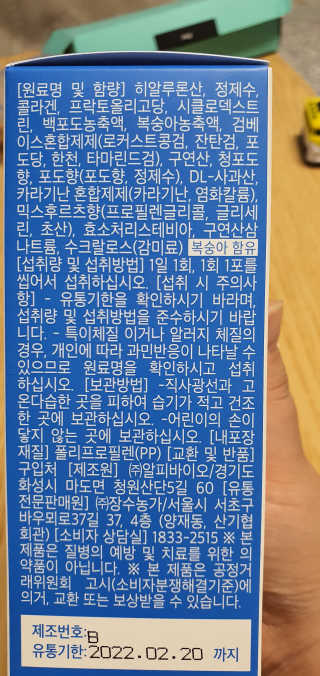 [원료명 및 함량] 히알루론산, 정제수,
콜라겐, 프락토올리고당, 시클로덱스트
린, 백포도농축액, 복숭아농축액, 검베
이스혼합제제(로커스트콩검, 잔탄검, 포
도당, 한천, 타마린드검), 구연산, 청포도
향, 포도향(포도향, 정제수), DL-사과산,
카라기난 혼합제제(카라기난, 염화칼륨),
믹스후르츠향(프로필렌글리콜, 글리세
린, 초산), 효소처리스테비아, 구연산삼
나트륨, 수크랄로스(감미료) 복숭아 함유
[섭취량 및 섭취방법] 1일 1회, 1회 1포를
씹어서 섭취하십시오. [섭취 시 주의사
항] - 유통기한을 확인하시기 바라며,
섭취량 및 섭취방법을 준수하시기 바랍
니다. - 특이체질 이거나 알러지 체질의
경우, 개인에 따라 과민반응이 나타날 수
있으므로 원료명을 확인하시고 섭취
하십시오. [보관방법] -직사광선과 고
온다습한 곳을 피하여 습기가 적고 건조
한 곳에 보관하십시오. -어린이의 손이
닿지 않는 곳에 보관하십시오. [내포장
재질] 폴리프로필렌(PP) [교환 및 반품]
구입처 [제조원] ㈜알피바이오/경기도
화성시 마도면 청원산단5길 60 [유통
전문판매원] ㈜장수농가/서울시 서초구
바우뫼로37길 37, 4층 (양재동, 산기협
회관) [소비자 상담실] 1833-2515 ※ 본
제품은 질병의 예방 및 치료를 위한 의
약품이 아닙니다. ※ 본 제품은 공정거
래위원회 고시(소비자분쟁해결기준)에
의거, 교환 또는 보상받을 수 있습니다.
제조번호:B
유통기한:2022.02.20 까지